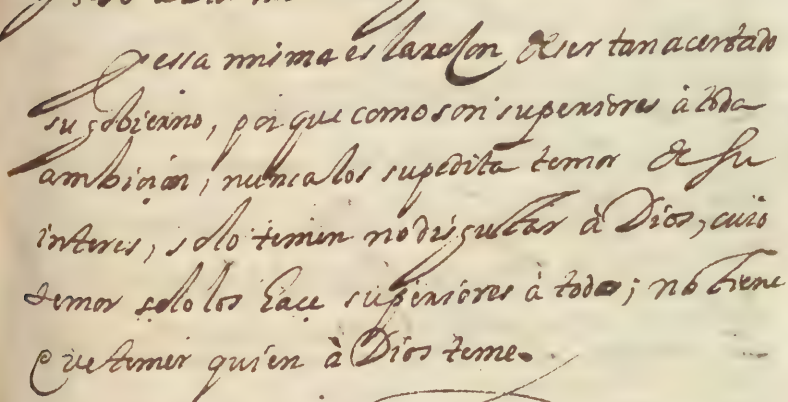 essa misma es la raçon de ser tan acertado
su gobierno, por que como son superiores à toda
ambicion, nunca los supedita temor de su
interes, solo temen no disgustar à Dios, cuio
temor solo los haçe superiores à todo; no tiene
que temer quien à Dios teme.